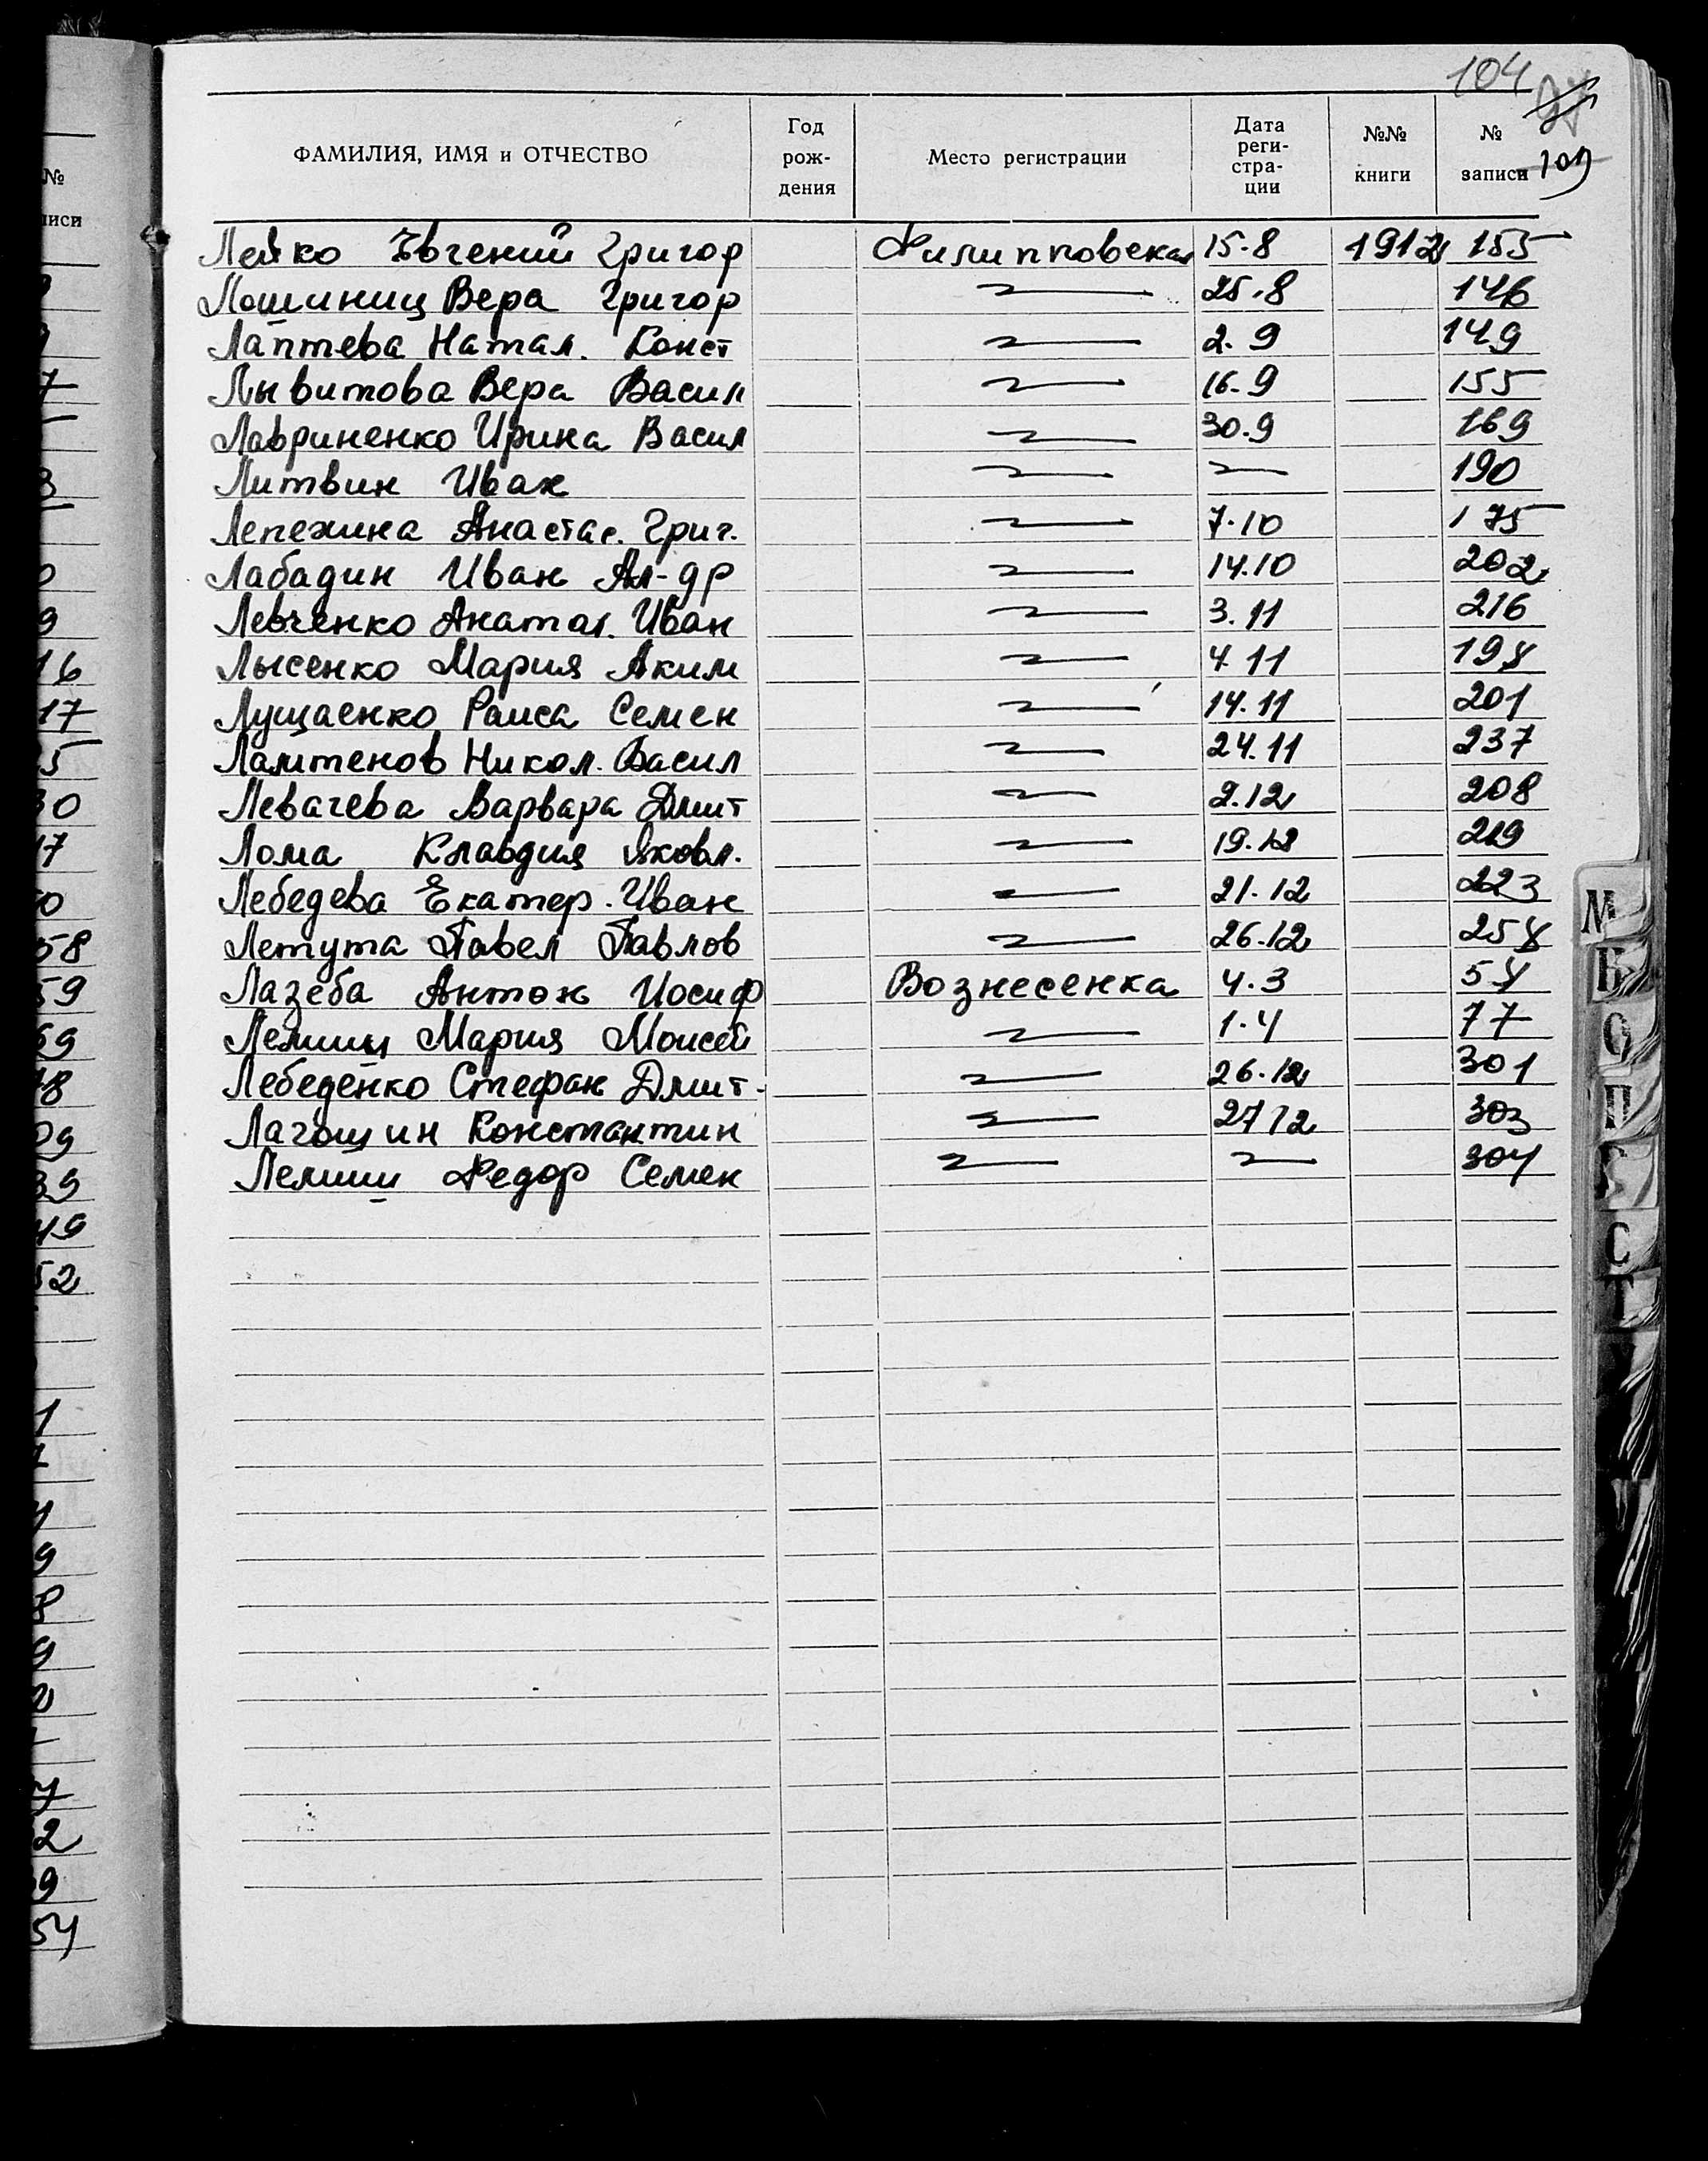 104
109
ФАМИЛИЯ, ИМЯ и ОТЧЕСТВО
Год рож- дения
Место регистрации
Дата реги- стра- ции
№№ книги
№ записи
Лейко Евгений Григор Филипповская 15.8 1912 155
Лошиниц Вера Григор 25.8 146
Лаптева Натал. Конст 2.9 149
Лывитова Вера Васил 16.9 155
Лавриненко Ирина Васил 30.9 169
Литвин Иван 190
Лепехина Анастас. Григ. 7.10 175
Лабадин Иван Ал-др 14.10 202
Левченко Анатол. Иван 3.11 216
Лысенко Мария Аким 4.11 198
Лущаенко Раиса Семен 14.11 201
Лаштенов Никол. Васил 24.11 237
Левачева Варвара Дмит 2.12 208
Лома Клавдия Яковл. 19.12 219
Лебедева Екатер. Иван 21.12 223
Летута Павел Павлов 26.12 258
Лазеба Антон Иосиф Вознесенка 4.3 54
Лемиш Мария Моисей 1.4 77
Лебеденко Стефан Дмит. 26.12 301
Лагошин Константин 27 12 303
Лемиш Федор Семен 304
№
иси
7
3
9
16
17
5
30
17
0
58
59
69
18
09
39
49
52
1
9
9
2
9
54
М
О
П
С
Т
У